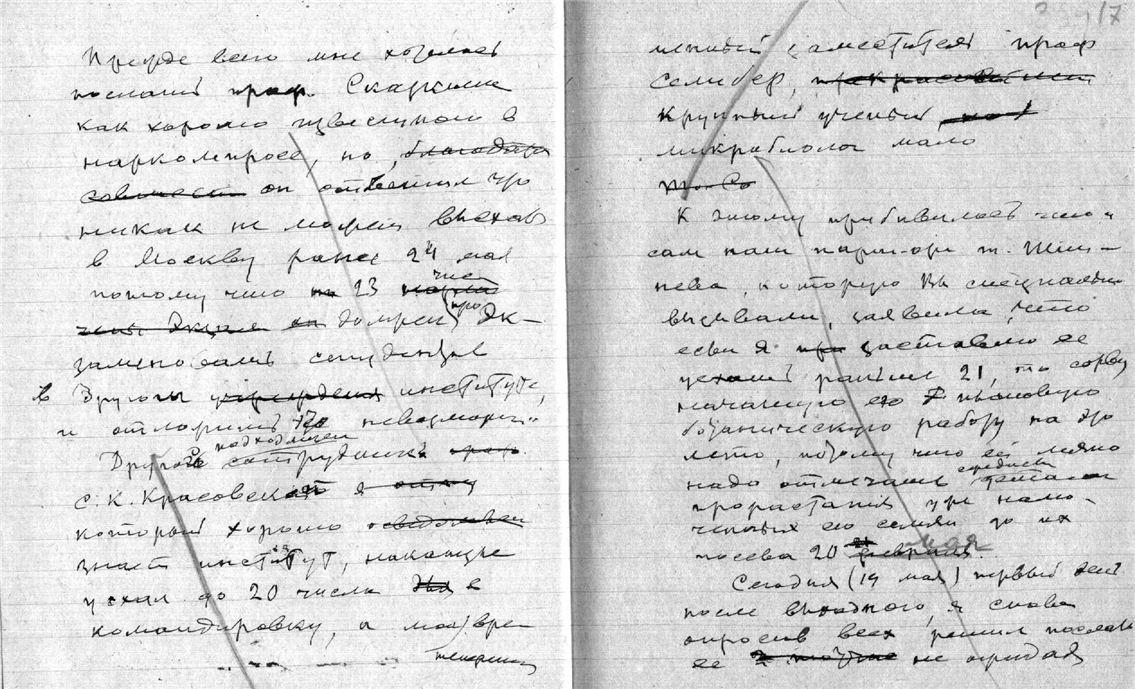 Прежде всего мне хотелось
послать проф. Скаркина
как хорошо известного в
наркомпросе, но благодаря
он ответил что
никак не может выехать
в Москву ранее 24 мая
потому что 23 числа
должен про эк-
заменовать студентов
в Другом учреждении институте,
и отложить это невозможно
Другой подходящий сотрудник
С. К. Красовская я
который хорошо осведомлен
знает институт, накануне
уехал до 20 числа в
командировку, а мой вре-
теперешн
менный заместитель проф
Селибер, прекрасный
крупный ученый,
микробиолог мало
К этому прибавилось что и
сам наш парторг т.
нева, которую Вы специально
вызывали, заявила, что
если я заставлю ее
уехать раньше 21, то сорву
начатую ею плановую
ботаническую работу на это
лето, потому что ей
надо отмечать
прорастания уже намо-
ченных ею семян до их
посева 20 февраля мая
Сегодня (19 мая) первый день
после выходного, я снова
опросив всех решил послать
ее не ожидая